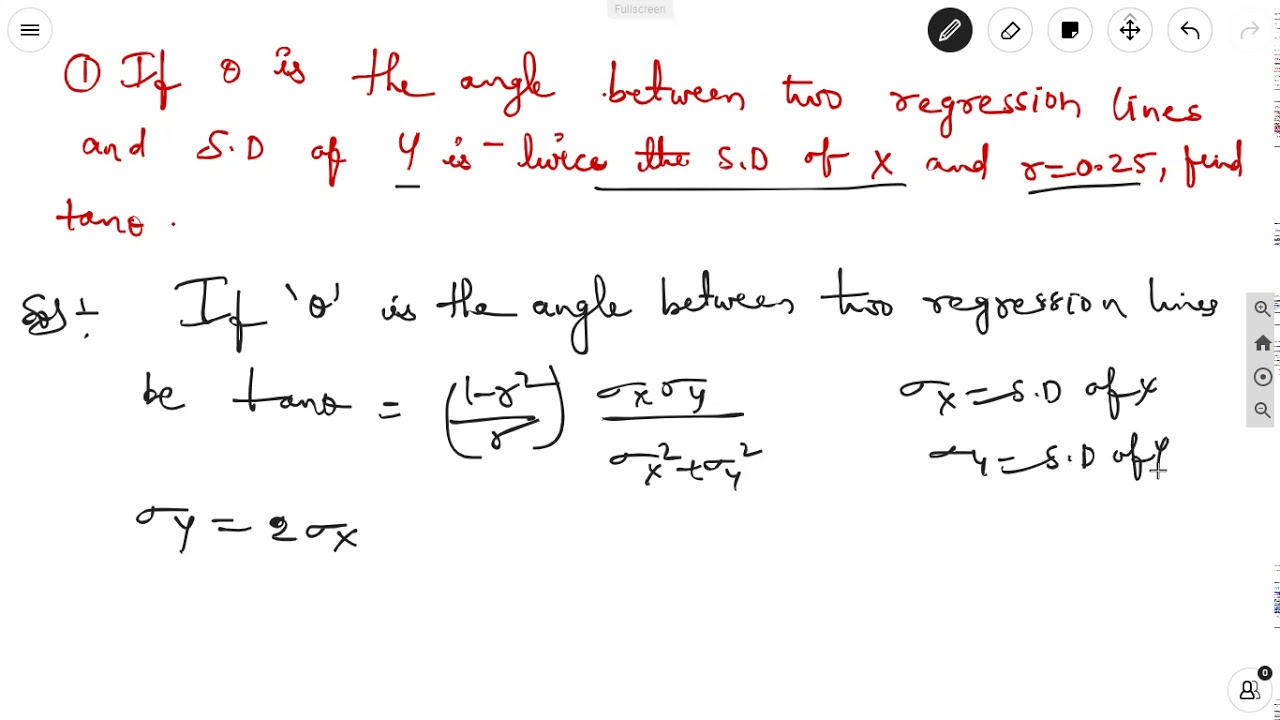 Fullscreen
① If θ is the angle between two regression lines
and S.D of Y is twice the S.D of X and r=0.25, find
tanθ.
Sol:- If 'θ' is the angle between two regression lines
be tanθ = ((1-r²)/r) σxσy/(σx²+σy²) σx = S.D of X
σy = S.D of Y
σy = 2σx
0